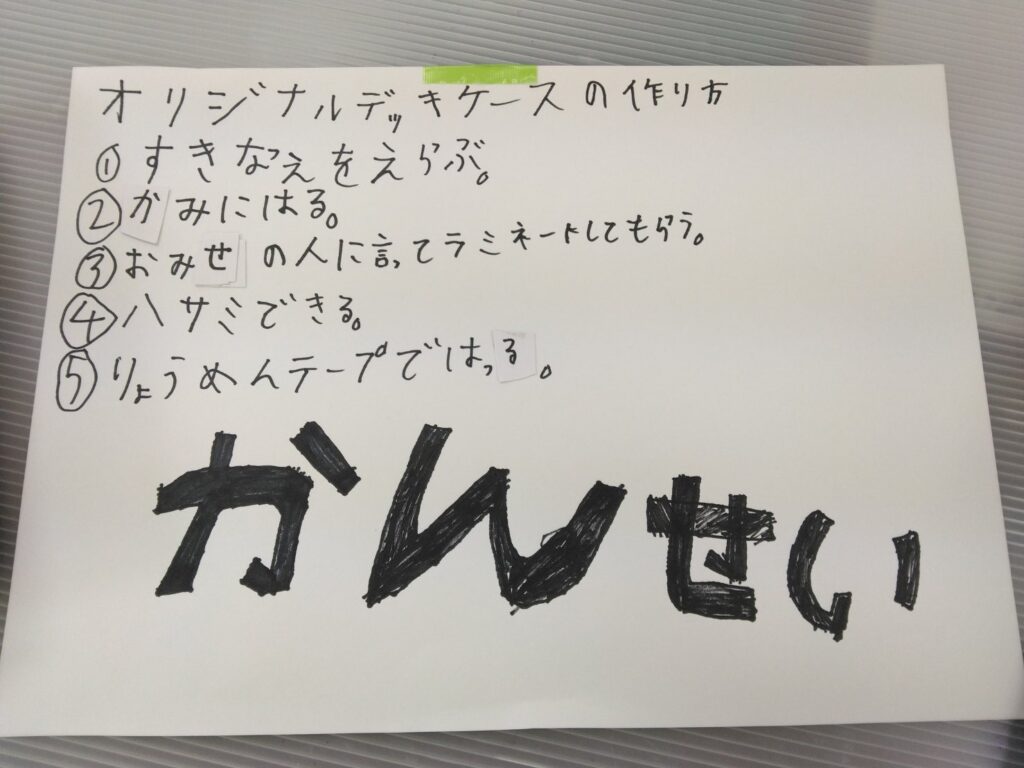 オリジナルデッキケースの作り方
①すきなえをえらぶ。
②かみにはる。
③おみせの人に言ってラミネートしてもらう。
④ハサミできる。
⑤りょうめんテープではっる。
かんせい